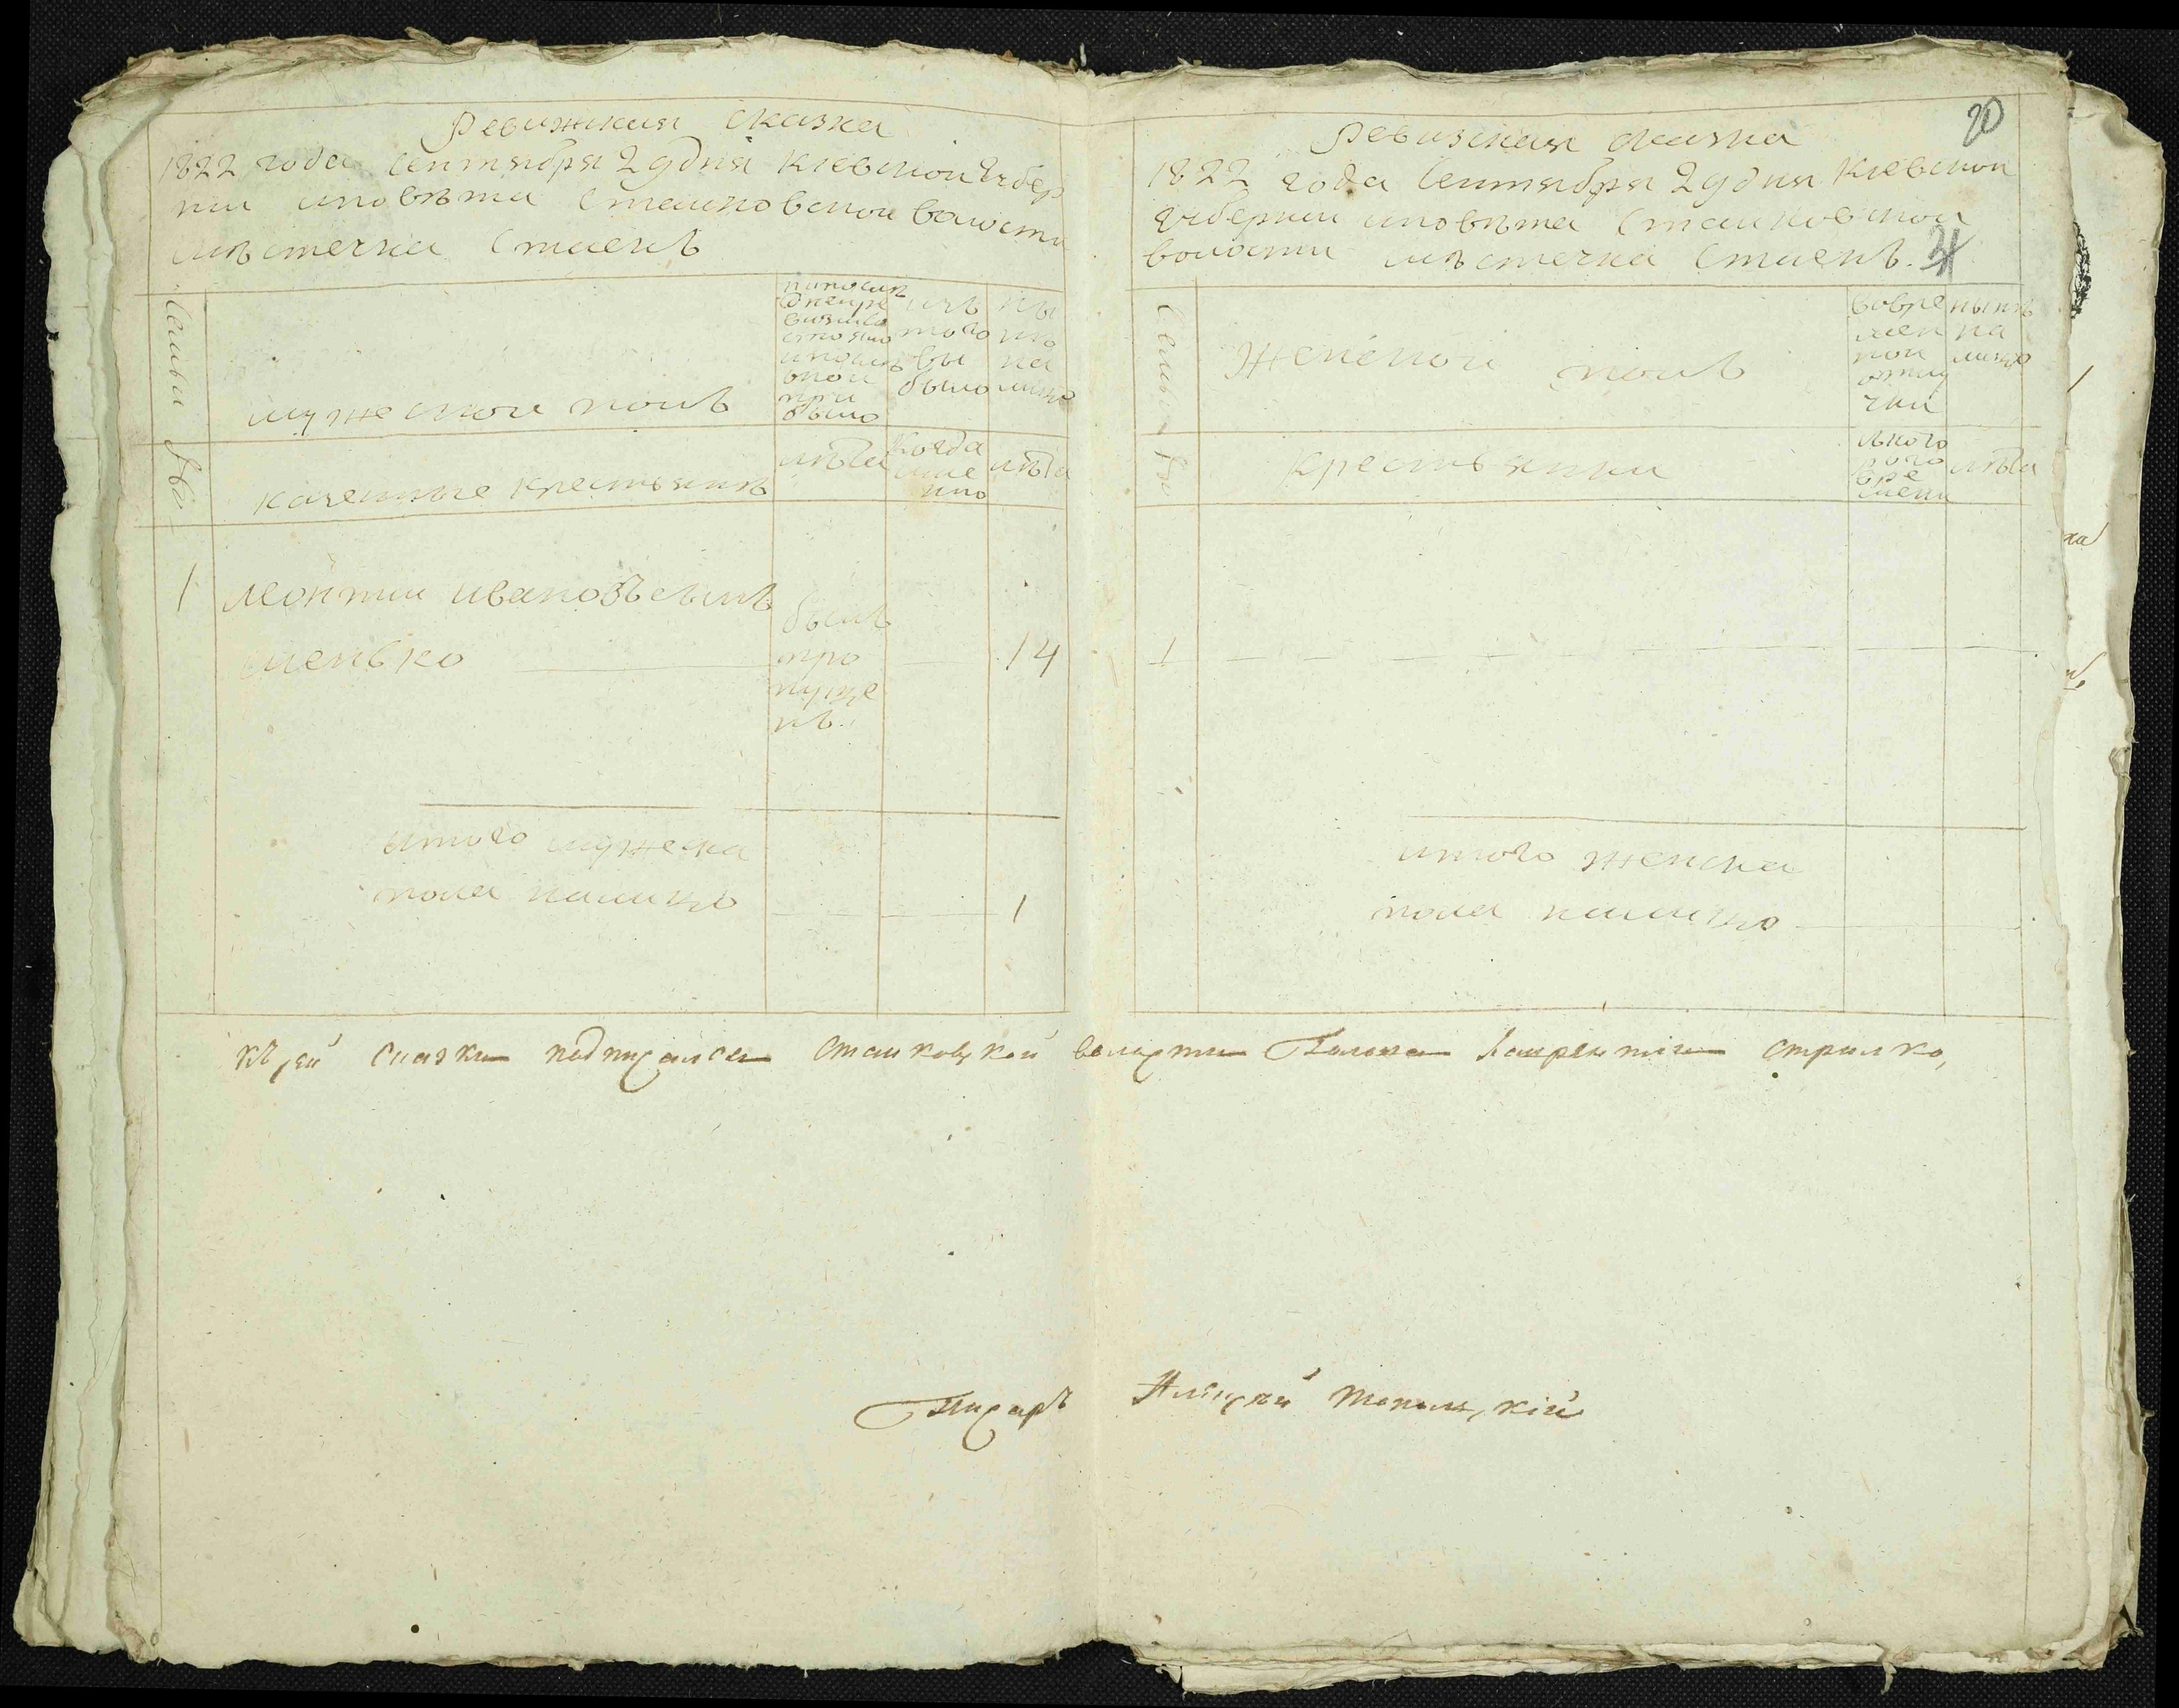 Ревижская сказка
1822 года сентября 29 дня Киевской губер
нии иповѣта Стайковской волости
мѣстечка Стаекъ
Семьи №
мужеской полъ
казенные крестьянѣ
по послѣ
дней ре
визіи со
стояло
и послѣ
оной
при
было
лѣта
изъ
того
вы
было
когда
име
нно
ны
нѣ
на
лицо
лѣта
1 Леонтии Ивановъ сынъ
былъ
про
пуще
нъ.
14
итого мужеска
пола налицо 1
20
Ревизская сказка
1822 года сентября 29 дня Киевской
губернии иповѣта Стайковской
волости мѣстечка Стаекъ. 4
Семьи №
Женской полъ
крестьянки
во вре
мен
ной
отлу
чки
с кото
рого
вре
мени
нынѣ
на
лицо
лѣта
1
итого женска
пола налицо
Къ сей сказки подписался Стайковской волости Голова Лаврентій Стрилко,
Писаръ Алексѣй